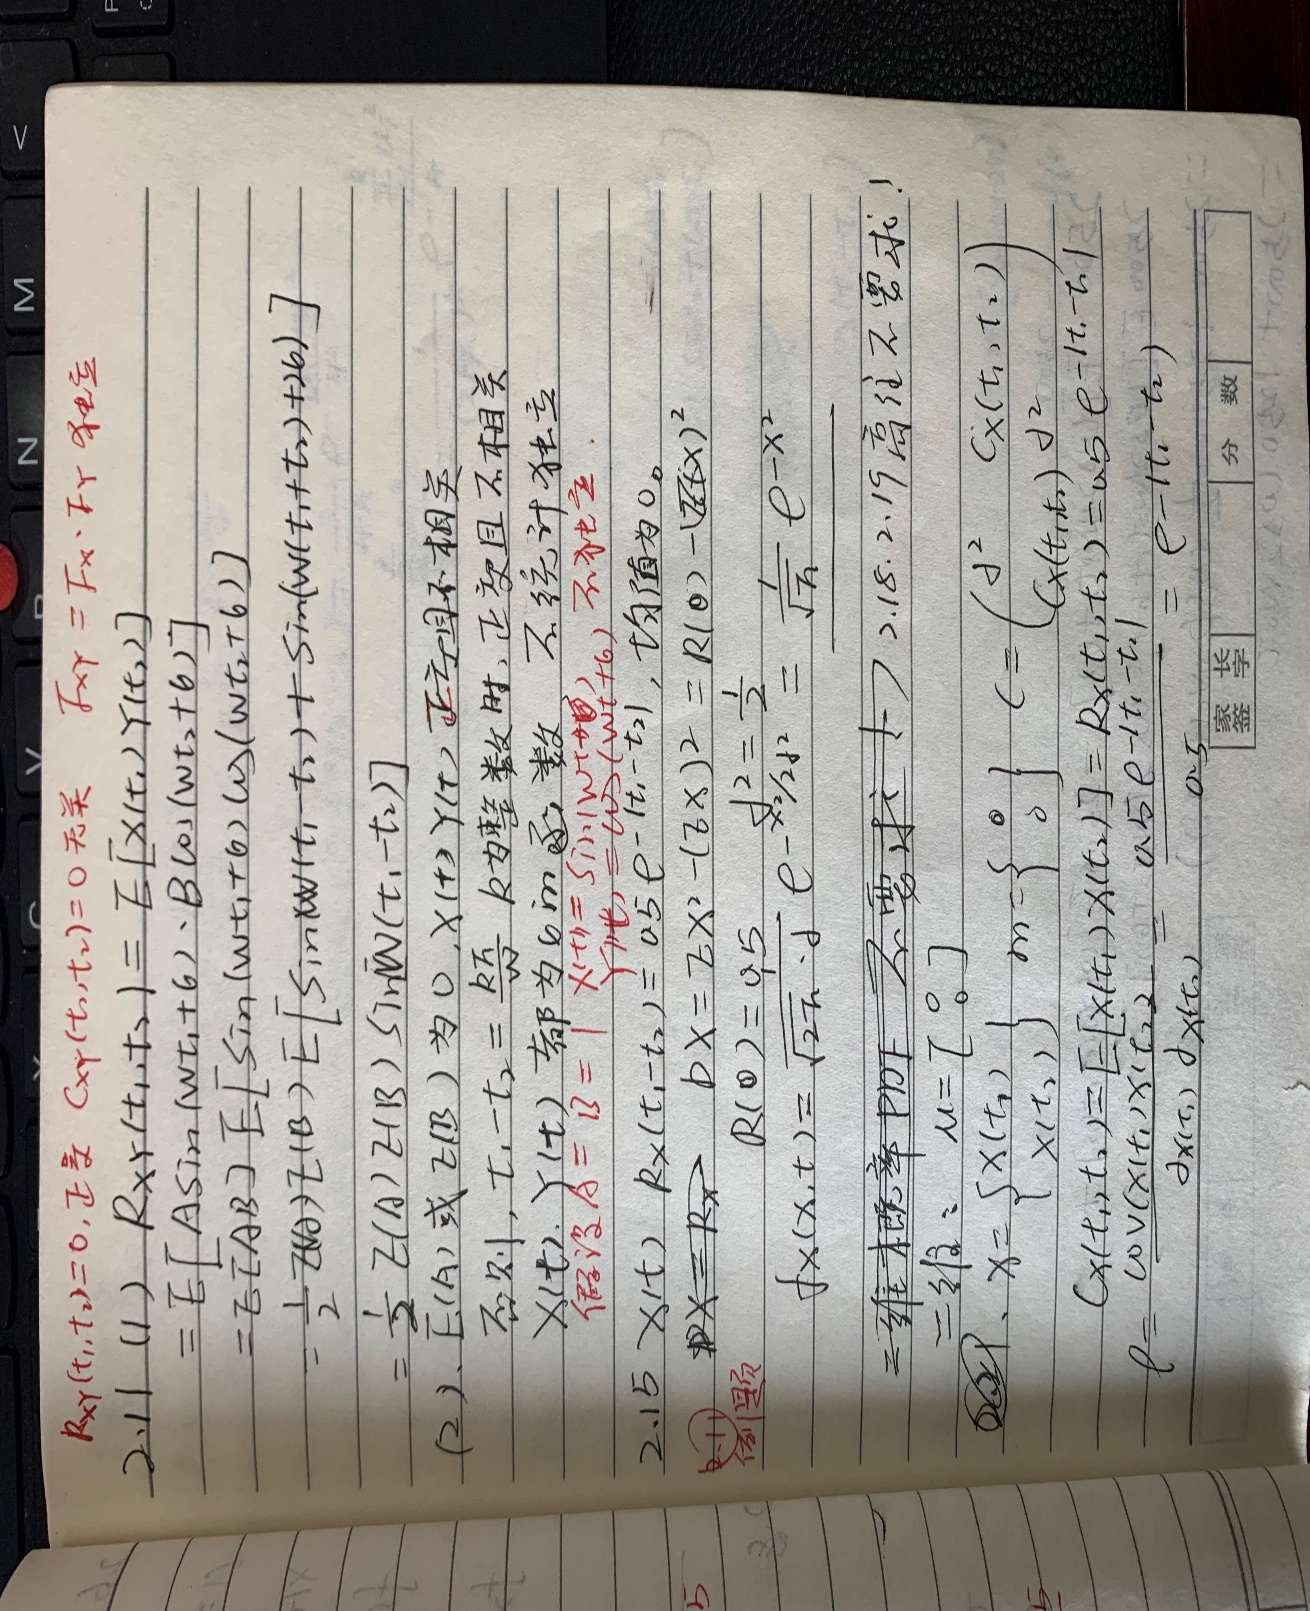 RXY(t1,t2)=0,正交 CXY(t1,t2)=0无关 FXY=FX·FY 独立
2.11 (1) RXY(t1,t2)=E[X(t1)Y(t2)]
=E[ASin(wt1+6)·Bcos(wt2+6)]
=E[AB]E[Sin(wt1+6)cos(wt2+6)]
=1/2 E(A)E(B)E[SinW(t1-t2)+Sin(W(t1+t2)+26)]
=1/2 E(A)E(B)SinW(t1-t2)]
(2)、E(A)或E(B)为0,X(t)Y(t)正交且不相关
否则,t1-t2=kπ/w k为整数时,正交且不相关
X(t).Y(t)都为sin函数 不统计独立
假设A=B=1 X(t)=Sin(wt+6) 不独立.
Y(t)=cos(wt+6)
2.15 X(t) RX(t1-t2)=0.5e-|t1-t2|,均值为0。
DX=EX²-(EX)²=R(0)-(EX)²
例题
R(0)=0.5 σ²=1/2
fX(x,t)=1/√2π·σ e-x²/2σ²=1/√π e-x²
二维概率PDF 不要求!
2.18.2.19高往不要求!
二维: u=[0 0]
X={X(t1) X(t2)} m={0 0} C=(σ² CX(t1,t2) CX(t1,t2) σ²)
CX(t1,t2)=E[X(t1)X(t2)]=RX(t1,t2)=0.5e-|t1-t2|
ρ=cov(X(t1)X(t2))/σX(t1)σX(t2)=0.5e-|t1-t2|/0.5=e-|t1-t2|
家长签字
分数
V
M
N